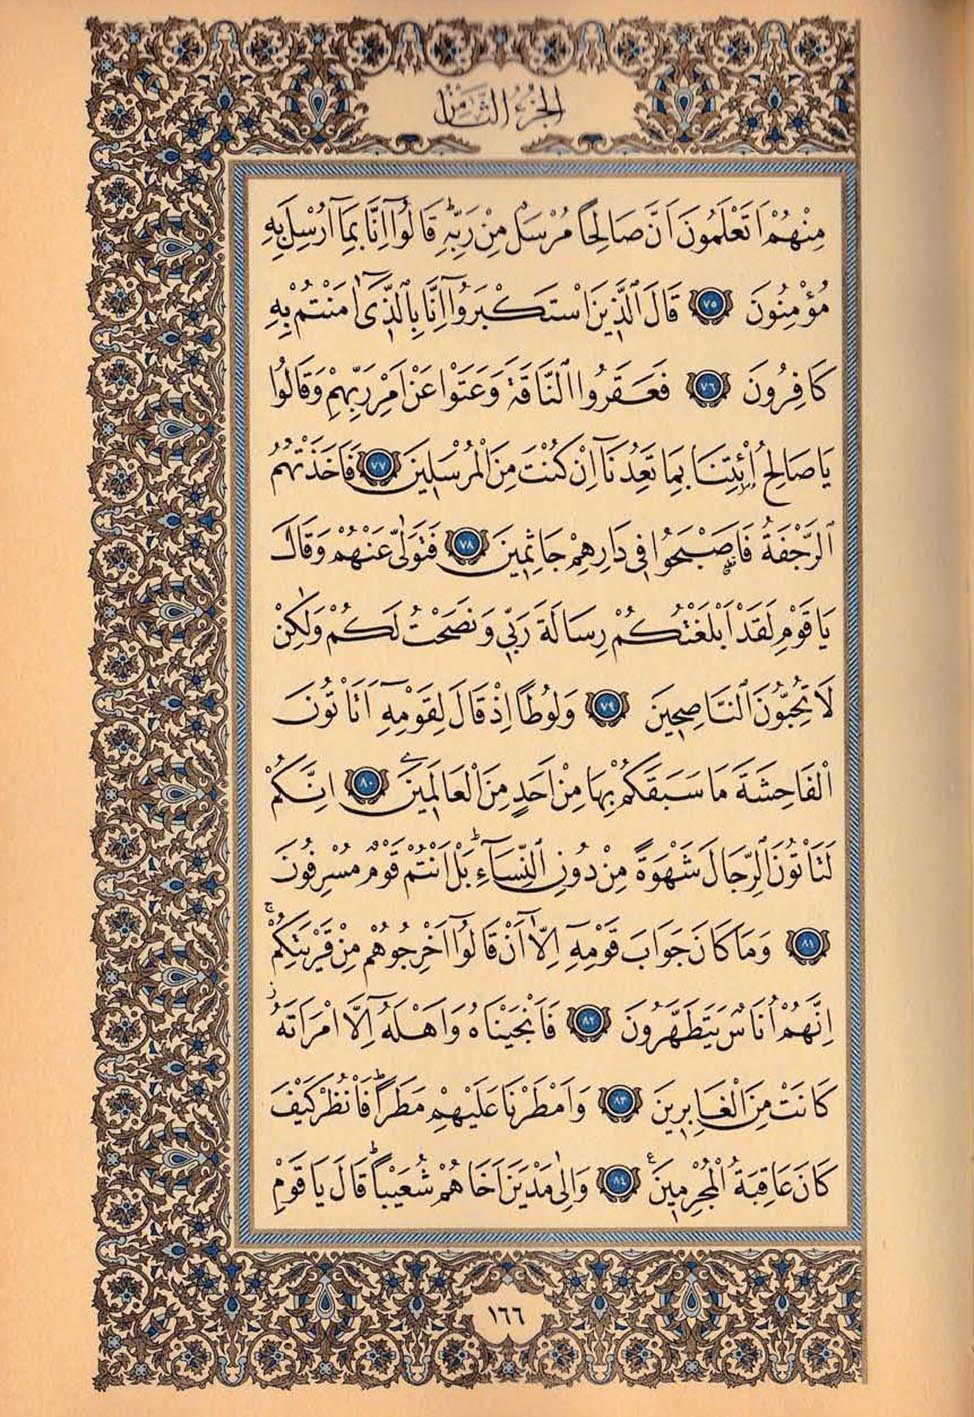 الجزء الثامن
مِنْهُمْ اَتَعْلَمُونَ اَنَّ صَالِحًا مُرْسَلٌ مِنْ رَبِّهِۜ قَالُٓوا اِنَّا بِمَٓا اُرْسِلَ بِهِ
مُؤْمِنُونَ ﴿٧٥﴾ قَالَ الَّذِينَ اسْتَكْبَرُٓوا اِنَّا بِالَّذِٓى اٰمَنْتُمْ بِهِ
كَافِرُونَ ﴿٧٦﴾ فَعَقَرُوا النَّاقَةَ وَعَتَوْا عَنْ اَمْرِ رَبِّهِمْ وَقَالُوا
يَا صَالِحُ ائْتِنَا بِمَا تَعِدُنَٓا اِنْ كُنْتَ مِنَ الْمُرْسَلِينَ ﴿٧٧﴾ فَاَخَذَتْهُمُ
الرَّجْفَةُ فَاَصْبَحُوا فِى دَارِهِمْ جَاثِمِينَ ﴿٧٨﴾ فَتَوَلّٰى عَنْهُمْ وَقَالَ
يَا قَوْمِ لَقَدْ اَبْلَغْتُكُمْ رِسَالَةَ رَبِّى وَنَصَحْتُ لَكُمْ وَلٰكِنْ
لَا تُحِبُّونَ النَّاصِحِينَ ﴿٧٩﴾ وَلُوطًا اِذْ قَالَ لِقَوْمِهِٓ اَتَاْتُونَ
الْفَاحِشَةَ مَا سَبَقَكُمْ بِهَا مِنْ اَحَدٍ مِنَ الْعَالَمِينَ ﴿٨٠﴾ اِنَّكُمْ
لَتَاْتُونَ الرِّجَالَ شَهْوَةً مِنْ دُونِ النِّسَٓاءِۜ بَلْ اَنْتُمْ قَوْمٌ مُسْرِفُونَ
﴿٨١﴾ وَمَا كَانَ جَوَابَ قَوْمِهِٓ اِلَّٓا اَنْ قَالُٓوا اَخْرِجُوهُمْ مِنْ قَرْيَتِكُمْۚ
اِنَّهُمْ اُنَاسٌ يَتَطَهَّرُونَ ﴿٨٢﴾ فَاَنْجَيْنَاهُ وَاَهْلَهُٓ اِلَّا امْرَاَتَهُۘ
كَانَتْ مِنَ الْغَابِرِينَ ﴿٨٣﴾ وَاَمْطَرْنَا عَلَيْهِمْ مَطَرًاۜ فَانْظُرْ كَيْفَ
كَانَ عَاقِبَةُ الْمُجْرِمِينَ ﴿٨٤﴾ وَاِلٰى مَدْيَنَ اَخَاهُمْ شُعَيْبًاۜ قَالَ يَا قَوْمِ
١٦٦